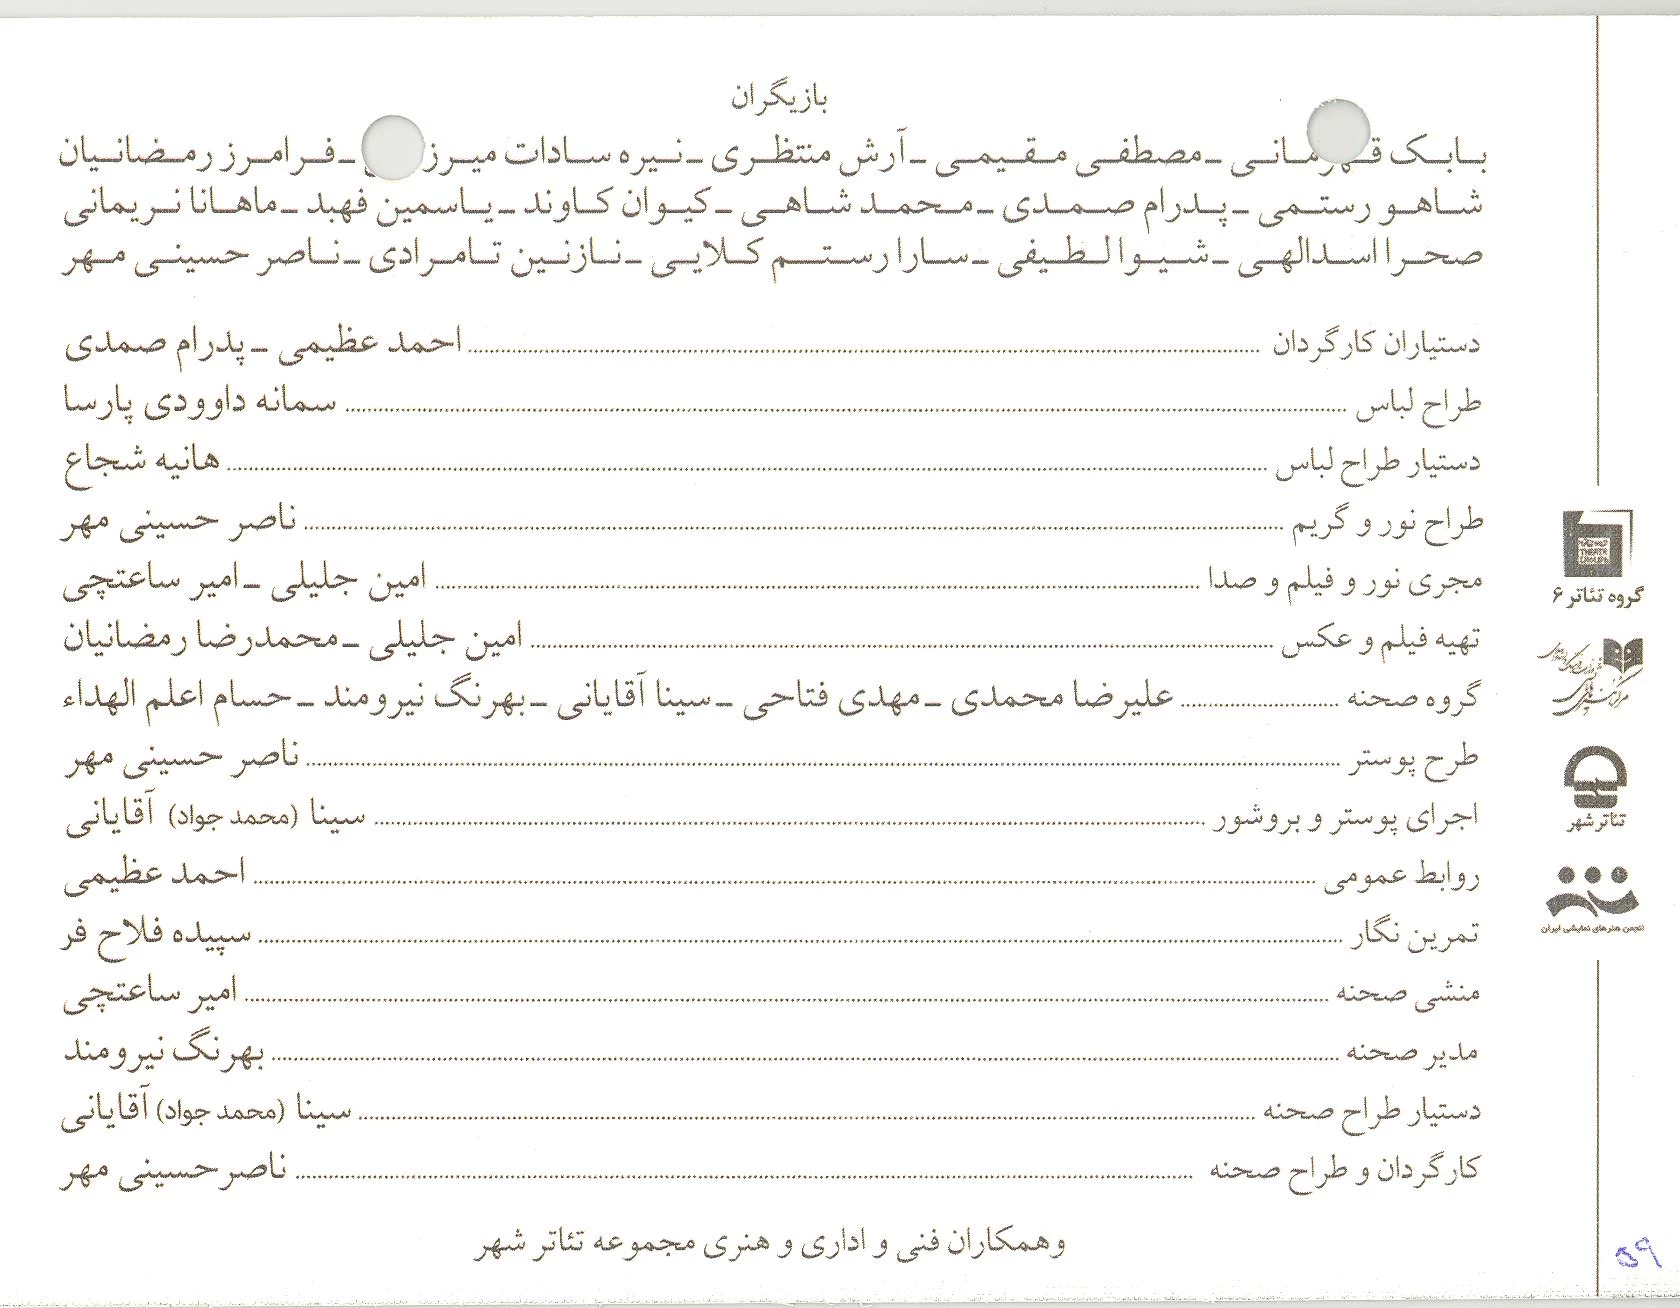 بازیگران
بابک قهرمانی ـ مصطفی مقیمی ـ آرش منتظری ـ نیره سادات ـ فرامرز رمضانیان
شاهو رستمی ـ پدرام صمدی ـ محمد شاهی ـ کیوان کاوند ـ یاسمین فهبد ـ ماهانا نریمانی
صحرا اسدالهی ـ شیوا لطیفی ـ سارا رستم کلایی ـ نازنین تامرادی ـ ناصر حسینی مهر
دستیاران کارگردان ........ احمد عظیمی ـ پدرام صمدی
طراح لباس ........ سمانه داوودی پارسا
دستیار طراح لباس ........ هانیه شجاع
طراح نور و گریم ........ ناصر حسینی مهر
مجری نور و فیلم و صدا ........ امین جلیلی ـ امیر ساعتچی
تهیه فیلم و عکس ........ امین جلیلی ـ محمدرضا رمضانیان
گروه صحنه ........ علیرضا محمدی ـ مهدی فتاحی ـ سینا آقایانی ـ بهرنگ نیرومند ـ حسام اعلم الهداء
طرح پوستر ........ ناصر حسینی مهر
اجرای پوستر و بروشور ........ سینا (محمد جواد) آقایانی
روابط عمومی ........ احمد عظیمی
تمرین نگار ........ سپیده فلاح فر
منشی صحنه ........ امیر ساعتچی
مدیر صحنه ........ بهرنگ نیرومند
دستیار طراح صحنه ........ سینا (محمد جواد) آقایانی
کارگردان و طراح صحنه ........ ناصر حسینی مهر
وهمکاران فنی و اداری و هنری مجموعه تئاتر شهر
گروه تئاتر ۶
تئاتر شهر
انجمن هنرهای نمایشی ایران